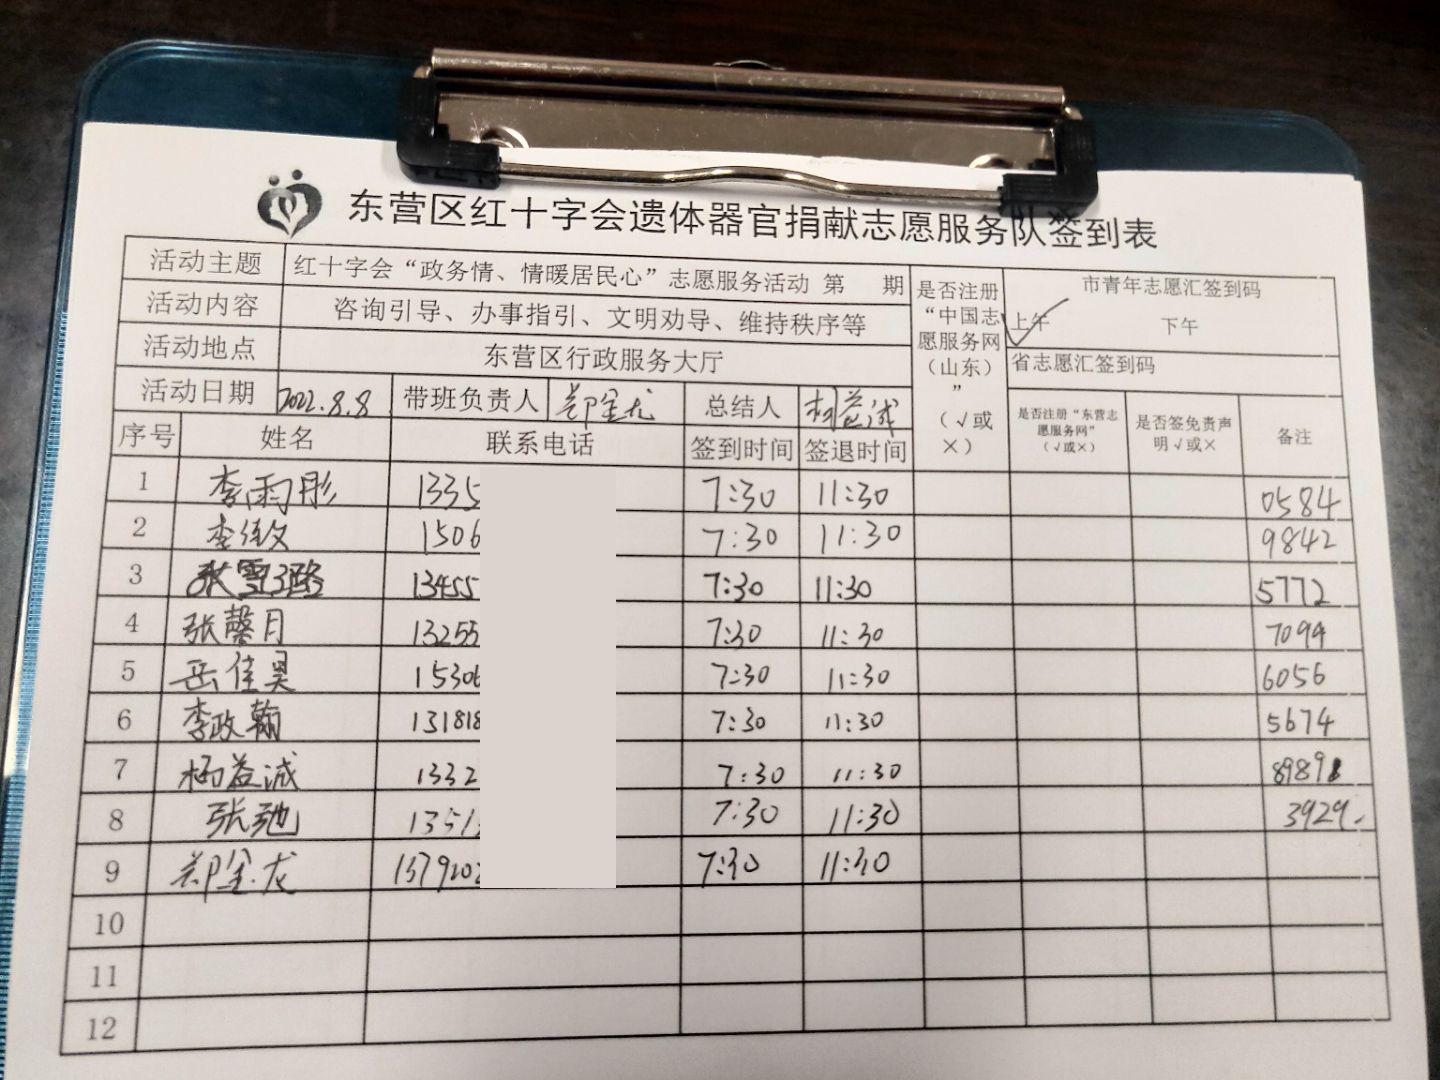 东营区红十字会遗体器官捐献志愿服务队签到表
活动主题 红十字会“政务情、情暖居民心”志愿服务活动 第 期 是否注册“中国志愿服务网（山东）”（√或×） 市青年志愿汇签到码
活动内容 咨询引导、办事指引、文明劝导、维持秩序等 上午 下午
活动地点 东营区行政服务大厅 省志愿汇签到码
活动日期 2022.8.8 带班负责人 郑金龙 总结人 杨益诚 是否注册“东营志愿服务网”（√或×） 是否签免责声明√或× 备注
序号 姓名 联系电话 签到时间 签退时间
1 李雨彤 1335 7:30 11:30 0584
2 1506 7:30 11:30 9842
3 张雪璐 13455 7:30 11:30 5772
4 张馨月 13255 7:30 11:30 7094
5 岳佳昊 15306 7:30 11:30 6056
6 李政翰 131818 7:30 11:30 5674
7 杨益诚 1332 7:30 11:30
8 张弛 1351 7:30 11:30 3929
9 郑金龙 1379202 7:30 11:30
10
11
12